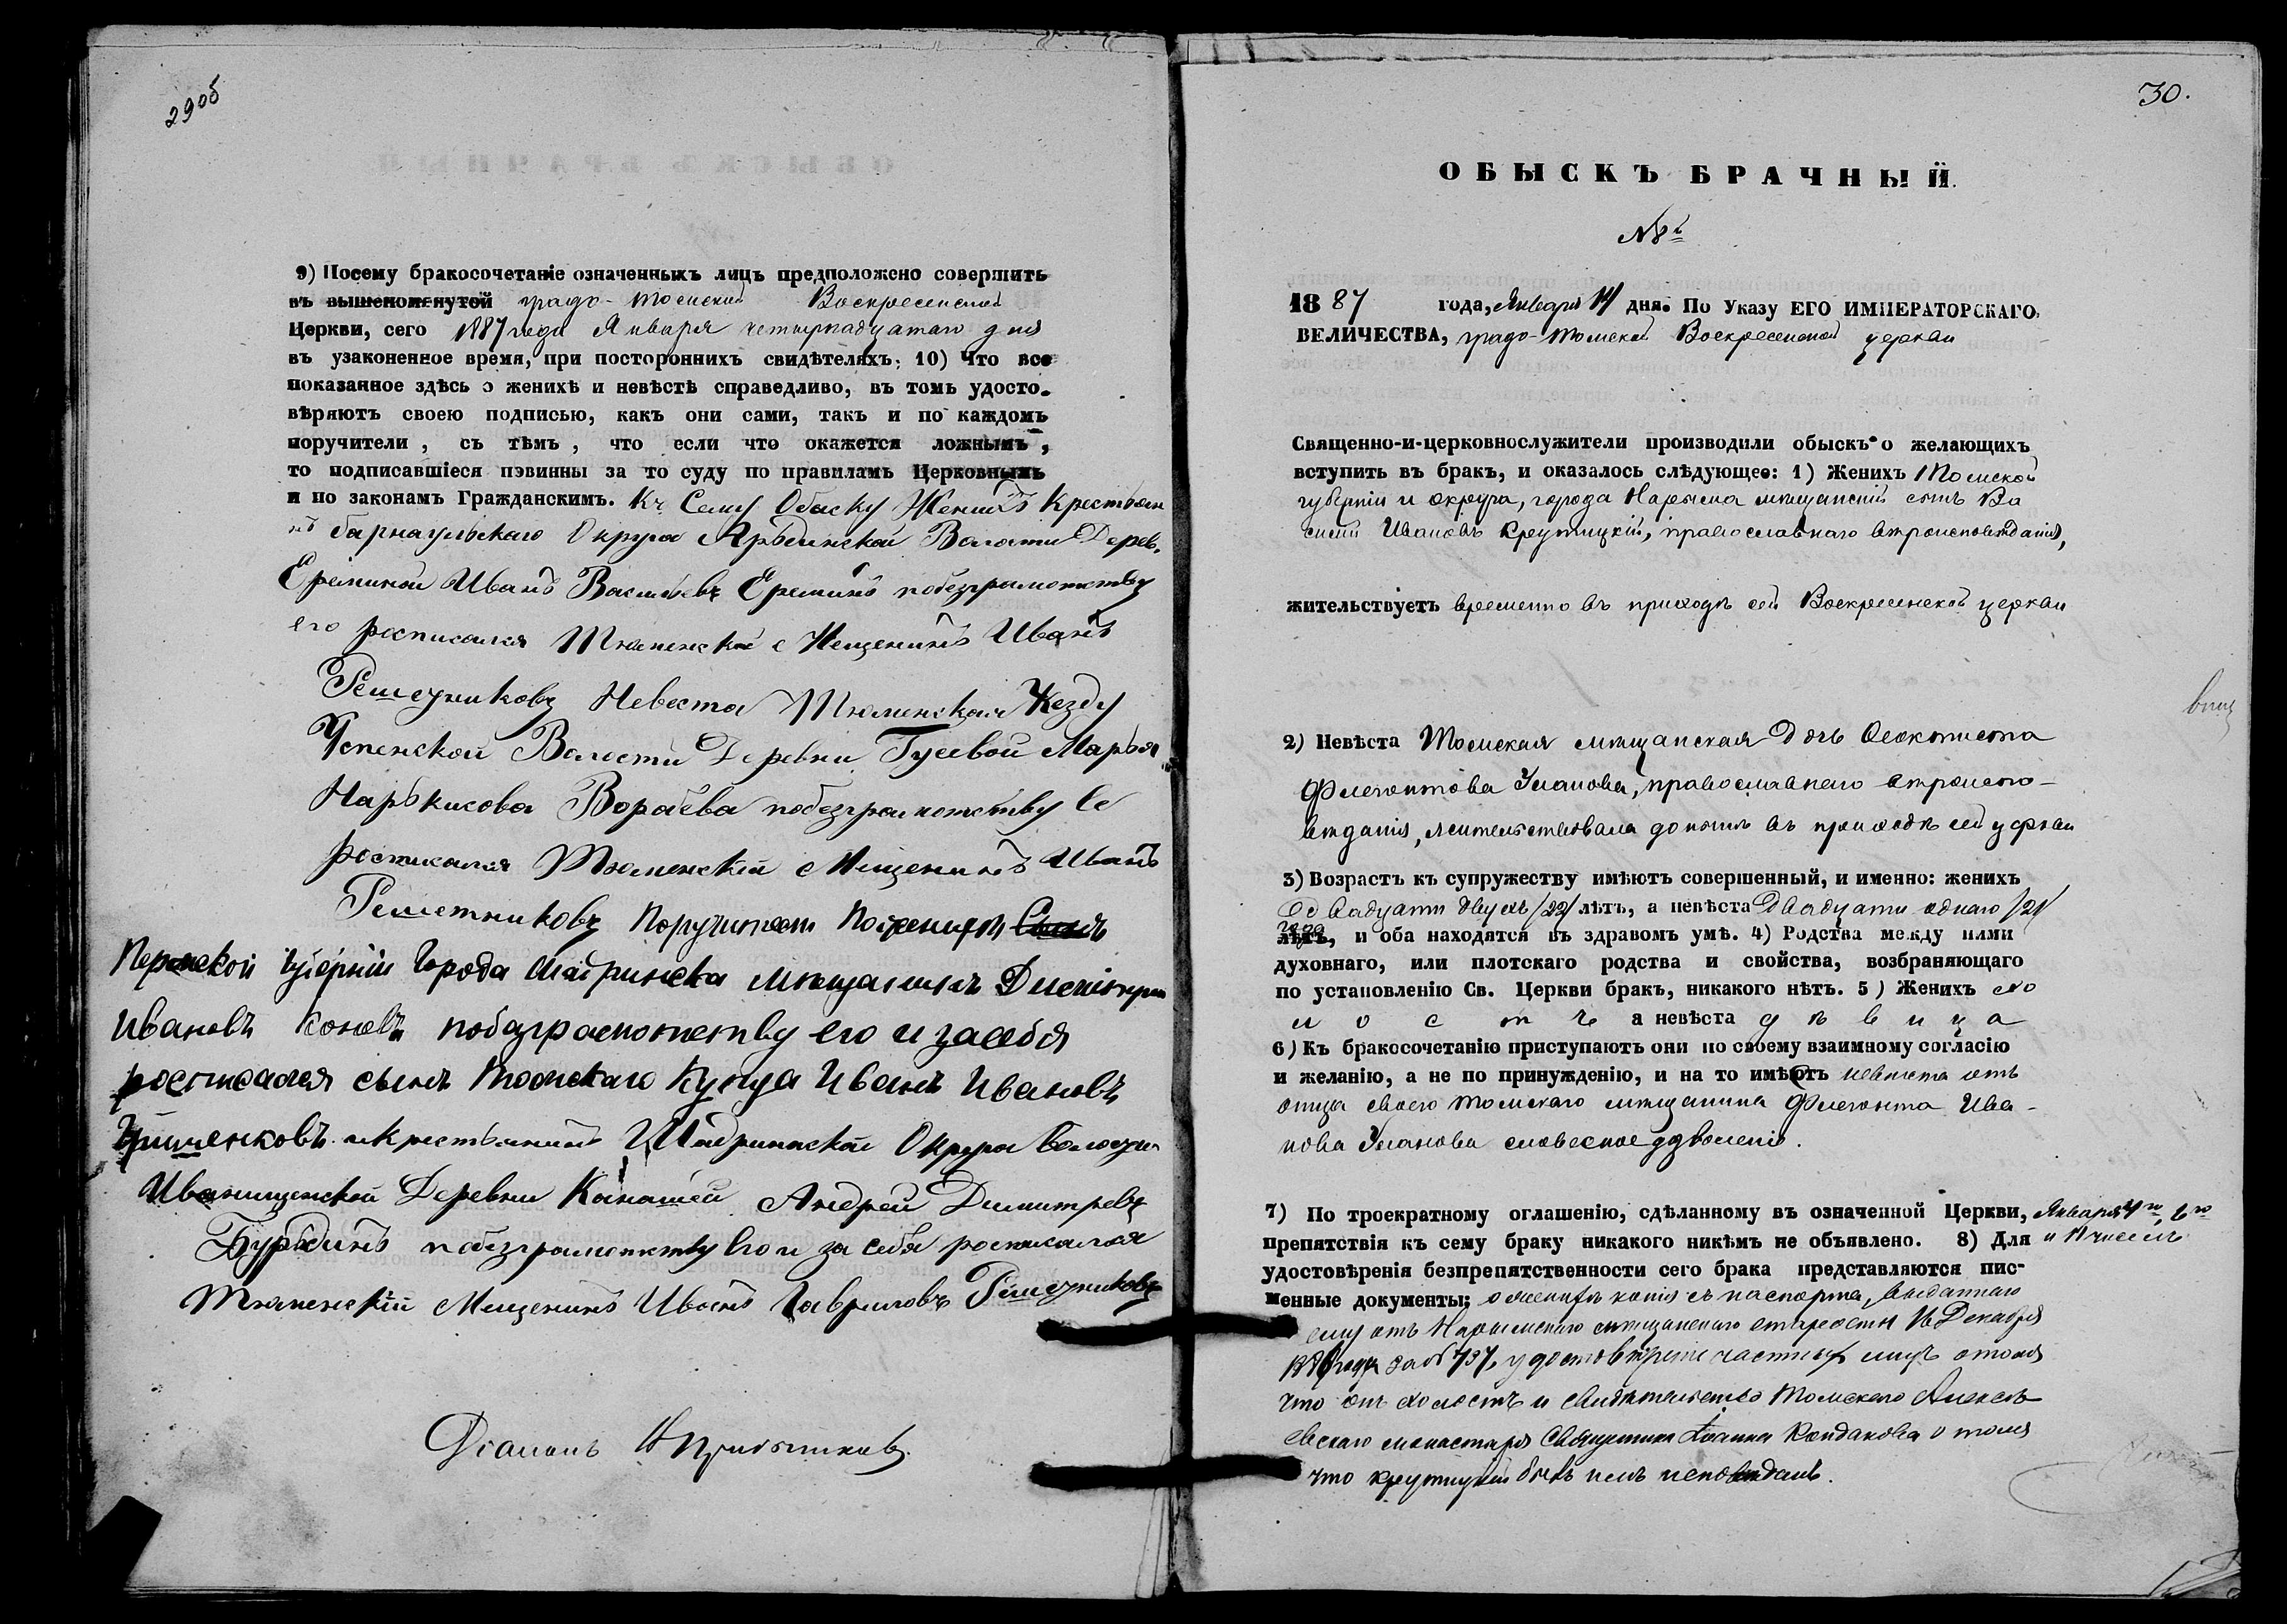 29об
9) Посему бракосочетаніе означенныхъ лицъ предположено совершить
въ вышепомянутой градо-Томской Воскресенской
Церкви, сего 1887 года Января четырнадцатаго дня
въ узаконенное время, при постороннихъ свидѣтеляхъ; 10) Что все
показанное здѣсь о женихѣ и невѣстѣ справедливо, въ томъ удосто-
вѣряютъ своею подписью, какъ они сами, такъ и по каждомъ
поручители, съ тѣмъ, что если что окажется ложнымъ,
то подписавшіеся повинны за то суду по правиламъ Церковнымъ
и по законамъ Гражданскимъ. Къ Сему Обыску Женихъ Крестьян
нъ барнаульскаго Округа Волости Дерев.
Ереминой Иванъ Васильевъ Ереминъ побезграмотству
его росписался Тюменской Мещенинъ Иванъ
Решетниковъ Невеста Тюменская Уезду
Успенской Волости Деревни Гусевой Марья
Нарькисова Воробева побезграмотству Ее
росписался Тюменскай Мещенинъ Иванъ
Решетниковъ Поручители Поженихѣ
Пермской Губерніи Города Шадринска мѣщанинъ Дмитрій
Ивановъ Коневъ побезграмотству его и засебя
росписался сынъ Томскаго Купца Иванъ Ивановъ
икрестьянинъ Шадринскай Округа Волости
Иванищенской Деревни Андрей Димитревъ
Бурдинъ побезграмотству Его и за себя росписался
Тюменскій Мещенинъ Иванъ Гавриловъ Решетниковъ
Діаконъ
30.
ОБЫСКЪ БРАЧНЫЙ.
№8й
1887 года, Января 14 дня. По Указу ЕГО ИМПЕРАТОРСКАГО
ВЕЛИЧЕСТВА, градо-Томской Воскресенской церкви
Священно-и-церковнослужители производили обыскъ о желающихъ
вступить въ бракъ, и оказалось слѣдующее: 1) Женихъ Томской
губерніи и округа, города Нарыма мѣщанскій сынъ Ва
силій Ивановъ Крутицкій, православнаго вѣроисповѣданія,
жительствуетъ временно въ приходѣ сей Воскресенской церкви
2) Невѣста Томская мѣщанская дочь Ѳеоктиста
Флегонтова Уланова, православнаго вѣроиспо-
вѣданія, жительствовала донынѣ въ приходѣ сей церкви
3) Возрастъ къ супружеству имѣютъ совершенный, и именно: женихъ
двадцати двухъ /22/ лѣтъ, а невѣста двадцати одного /21/
года лѣтъ, и оба находятся въ здравомъ умѣ. 4) Родства между ними
духовнаго, или плотскаго родства и свойства, возбраняющаго
по установленію Св. Церкви бракъ, никакого нѣтъ. 5) Женихъ хо
лостъ а невѣста дѣвица
6) Къ бракосочетанію приступаютъ они по своему взаимному согласію
и желанію, а не по принужденію, и на то имѣютъ невѣста отъ
отца своего томскаго мѣщанина Флегонта Ива-
нова Уланова словесное дозволеніе.
7) По троекратному оглашенію, сдѣланному въ означенной Церкви, Января 4го, 6го
препятствія къ сему браку никакого никѣмъ не объявлено. 8) Для и 11 чиселъ
удостовѣренія безпрепятственности сего брака представляются пис-
менные документы: о женихѣ копія съ паспорта, выданнаго
ему отъ Нарымскаго мѣщанскаго старосты 16 Декабря
1886 года за № 737, удостовѣреніе частныхъ лицъ отомъ
что онъ холостъ и свидѣтельство Томскаго Алексѣ
евскаго монастыря Священника Іоанна Кондакова о томъ
что Крутицкій былъ имъ исповѣданъ.